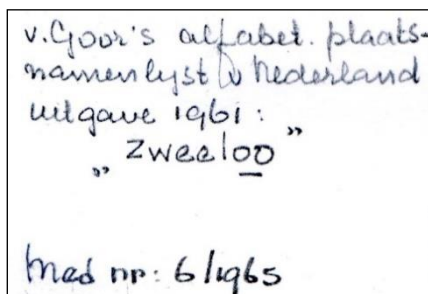 v. Goor's alfabet. plaats-
namenlyst v Nederland
uitgave 1961:
„ Zweeloo ”
Med nr: 6/1965